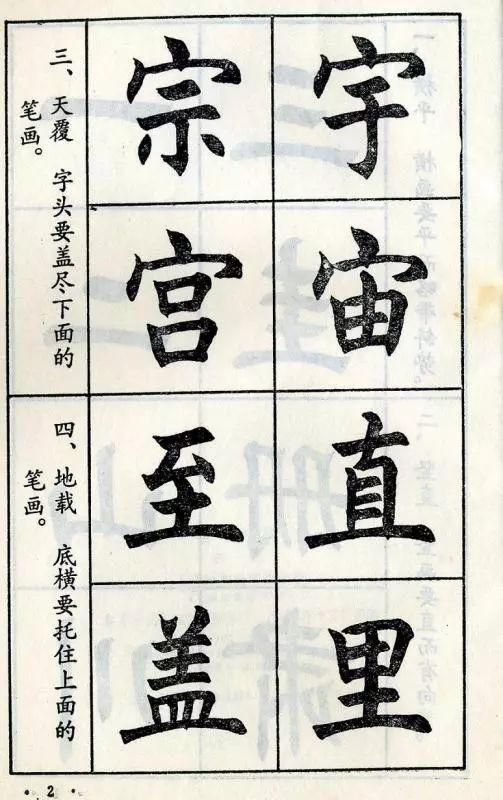 宇
宙
宗
宫
三、天覆　字头要盖尽下面的
笔画。
直
里
至
盖
四、地载　底横要托住上面的
笔画。
·2·